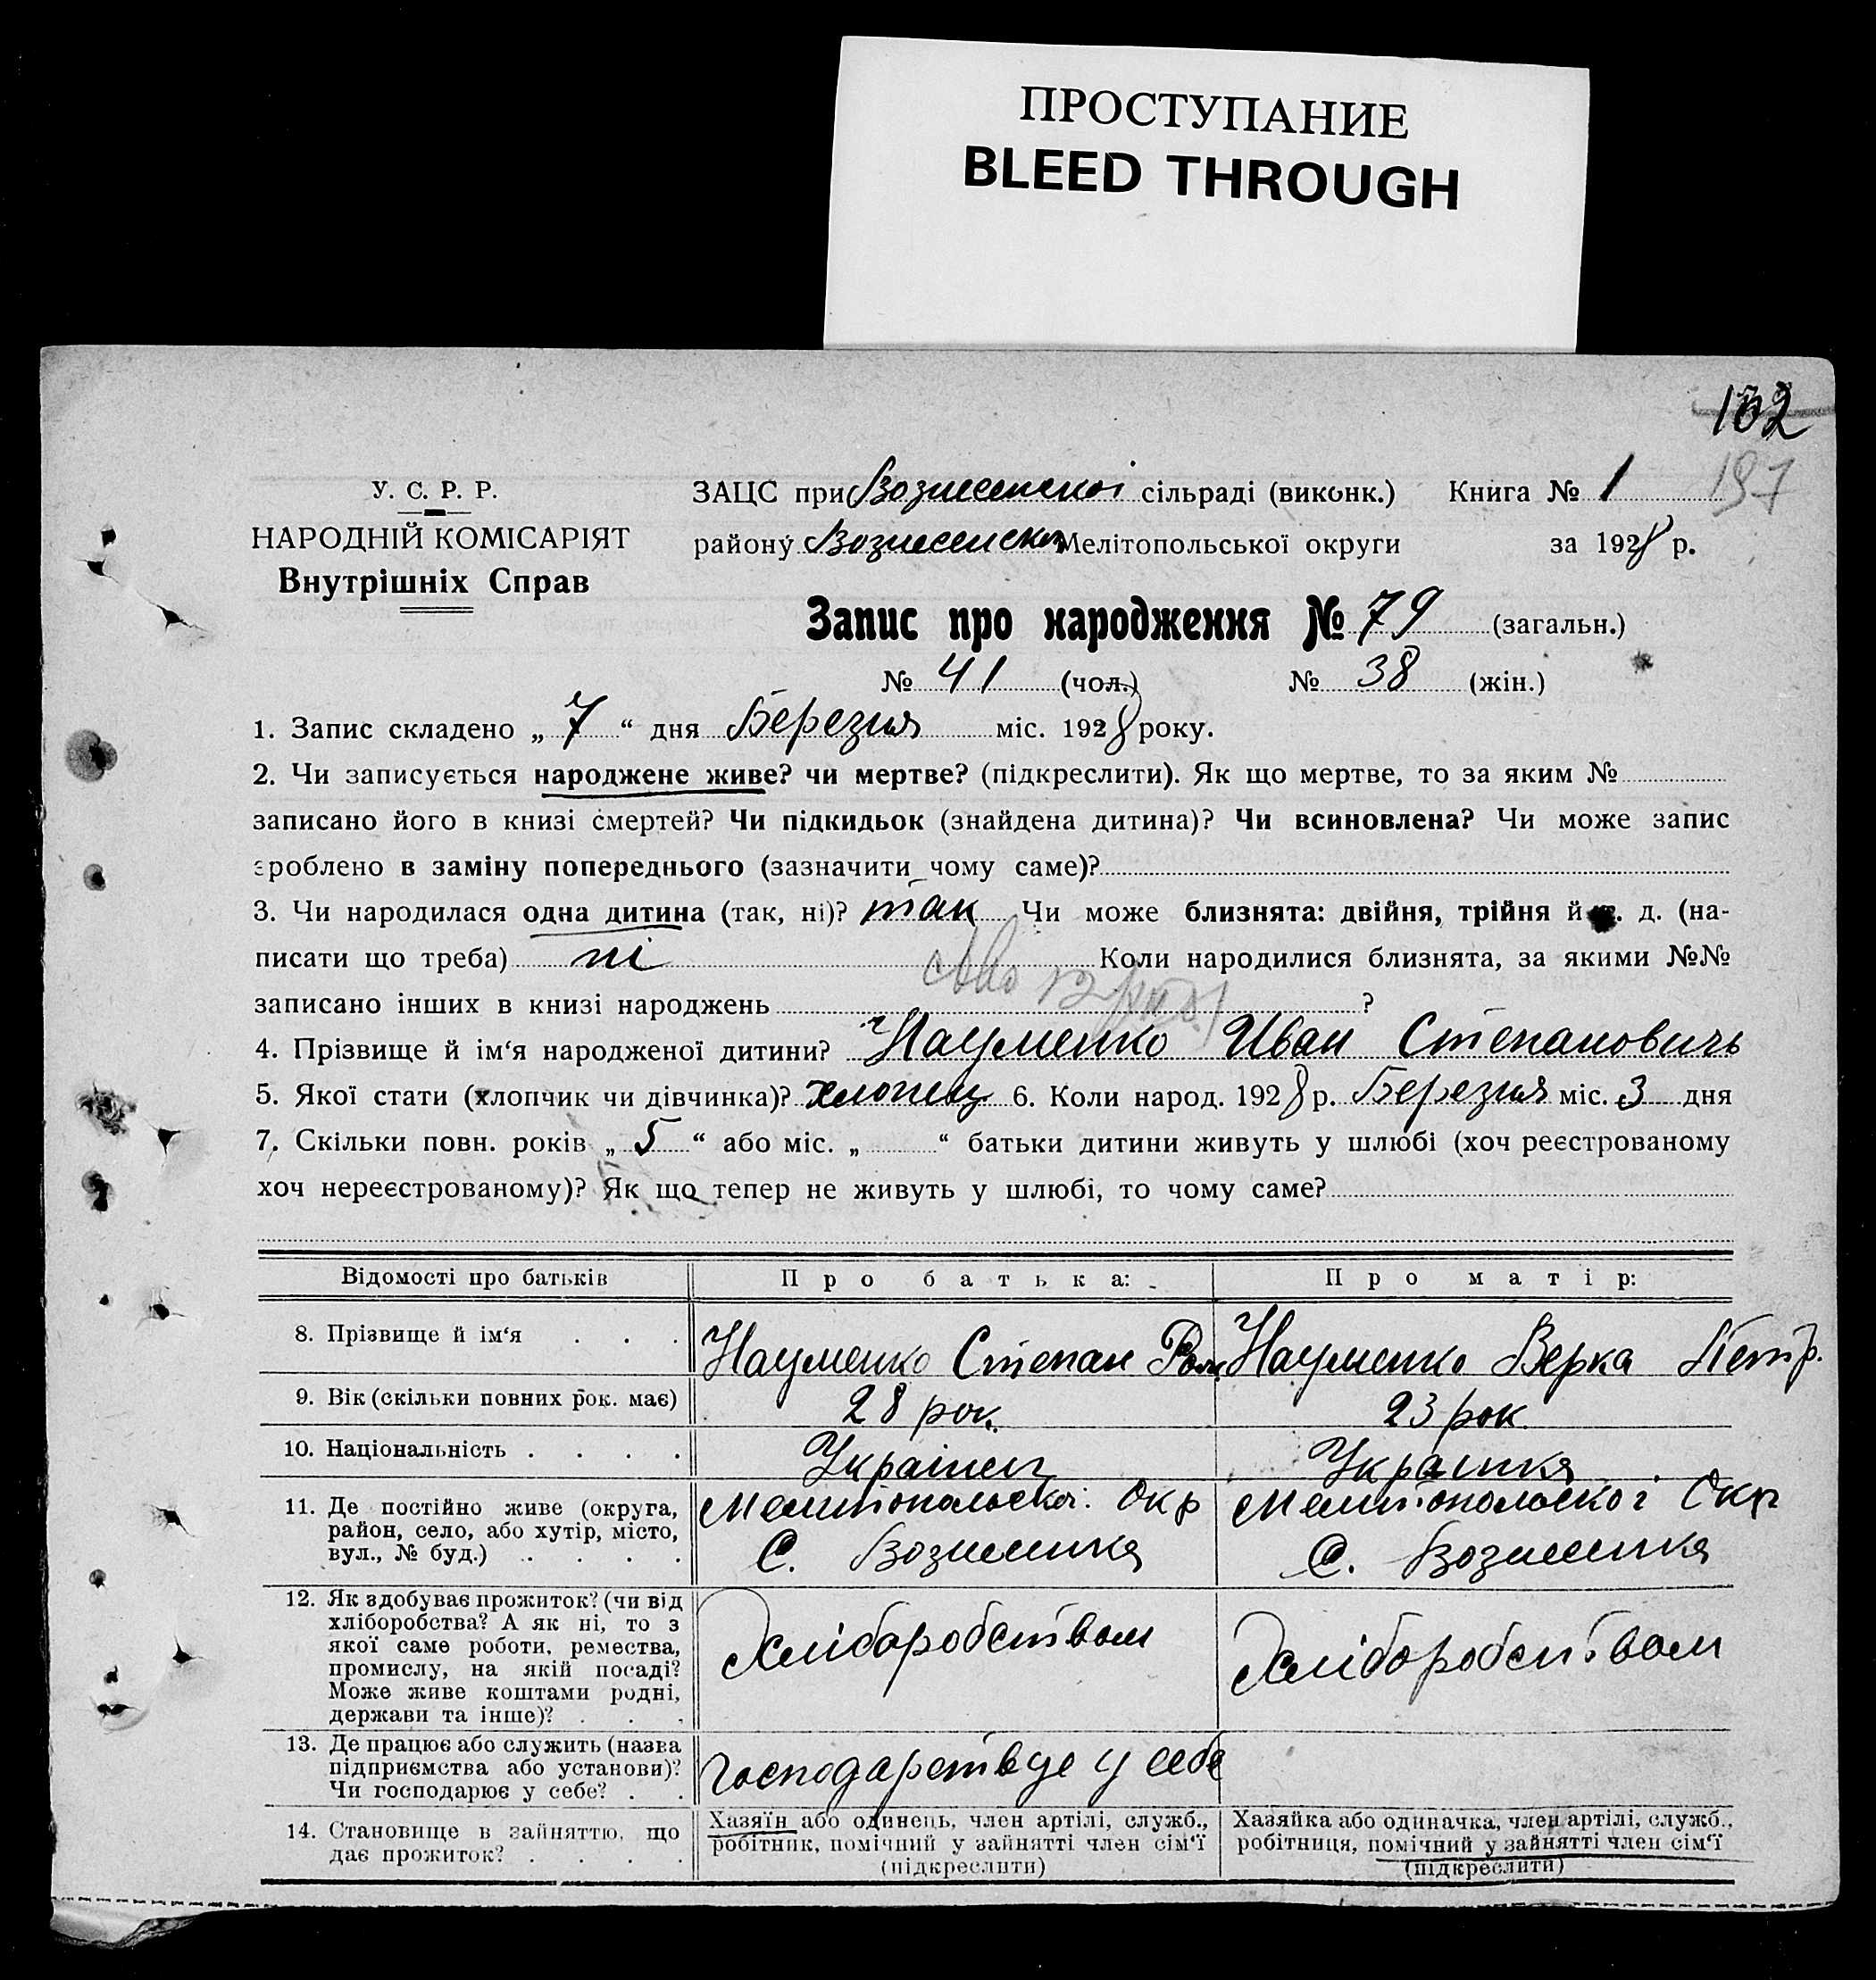 ПРОСТУПАНИЕ
BLEED THROUGH
102
197
У. С. Р. Р.
НАРОДНІЙ КОМІСАРІЯТ
Внутрішніх Справ
ЗАЦС при Вознесенскоі сільраді (виконк.) Книга № 1
району Вознесенско Мелітопольської округи за 1928 р.
Запис про народження № 79 (загальн.)
№ 41 (чол.) № 38 (жін.)
1. Запис складено „ 7 “ дня Березня міс. 1928 року.
2. Чи записується народжене живе? чи мертве? (підкреслити). Як що мертве, то за яким №
записано його в книзі смертей? Чи підкидьок (знайдена дитина)? Чи всиновлена? Чи може запис
зроблено в заміну попереднього (зазначити чому саме)?
3. Чи народилася одна дитина (так, ні)? так Чи може близнята: двійня, трійня й т. д. (на-
писати що треба) ні Коли народилися близнята, за якими №№
записано інших в книзі народжень ?
4. Прізвище й ім‘я народженої дитини? Науменко Иван Степановичь
5. Якої стати (хлопчик чи дівчинка)? хлопец 6. Коли народ. 1928 р. Березня міс. 3 дня
7. Скільки повн. років „ 5 “ або міс. „ “ батьки дитини живуть у шлюбі (хоч реєстрованому
хоч нереєстрованому)? Як що тепер не живуть у шлюбі, то чому саме?
Відомості про батьків Про батька: Про матір:
8. Прізвище й ім‘я . . . Науменко Степан Ром. Науменко Верка Петр.
9. Вік (скільки повних рок. має) 28 рок. 23 рок
10. Національність . . . . Українец Українка
11. Де постійно живе (округа, район, село, або хутір, місто, вул., № буд.) . . . . Мелитопольскоі Окр С. Вознесенка Мелитопольскоі Окр С. Вознесенка
12. Як здобуває прожиток? (чи від хліборобства? А як ні, то з якої саме роботи, ремества, промислу, на якій посаді? Може живе коштами родні, держави та інше)? . . . Хліборобством Хліборобством
13. Де працює або служить (назва підприємства або установи)? Чи господарює у себе? . . Господарствуе у себе
14. Становище в зайняттю, що дає прожиток? . . . . Хазяїн або одинець, член артілі, служб., робітник, помічний у зайнятті член сім‘ї (підкреслити) Хазяйка або одиначка, член артілі, служб., робітниця, помічний у зайнятті член сім‘ї (підкреслити)